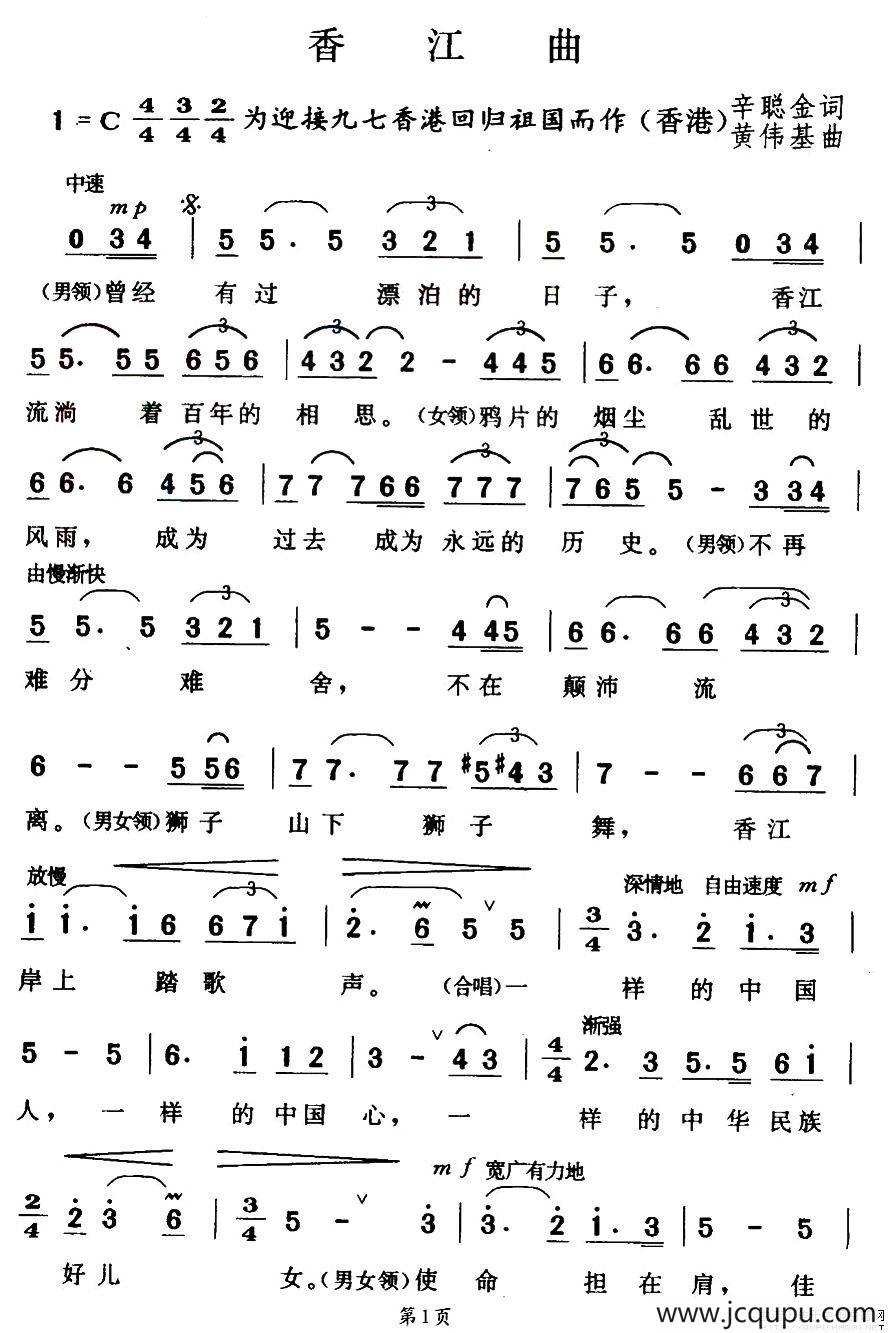 香 江 曲
1=C 4/4 3/4 2/4 为迎接九七香港回归祖国而作(香港) 辛聪金词
黄伟基曲
中速
mp
0 34 | 5 5. 5 321 | 5 5. 5 034 |
(男领)曾经 有过 漂泊的 日子, 香江
5 5. 55 656 | 4322 - 445 | 6 6. 66 432 |
流淌 着百年的 相思。(女领)鸦片的 烟尘 乱世的
6 6. 6 456 | 77 766 777 | 7655 - 334 |
风雨, 成为 过去 成为永远的 历史。(男领)不再
由慢渐快
5 5. 5 321 | 5 - - 445 | 6 6. 66 432 |
难分 难 舍, 不在 颠沛 流
6 - - 556 | 7 7. 77 #5#43 | 7 - - 667 |
离。(男女领)狮子 山下 狮子 舞, 香江
放慢 深情地 自由速度 mf
i i. i6 67i | 2. 6 5 5 | 3/4 3. 2 i. 3 |
岸上 踏歌 声。 (合唱)一 样 的中国
渐强
5 - 5 | 6. i i12 | 3 - 43 | 4/4 2. 3 5.5 6i |
人, 一 样 的中国 心, 一 样的中华民族
mf 宽广有力地
2/4 2 3 6 | 3/4 5 - 3 | 3. 2 i. 3 | 5 - 5 |
好儿 女。(男女领)使 命 担在 肩, 佳
第1页
www.jcqupu.com